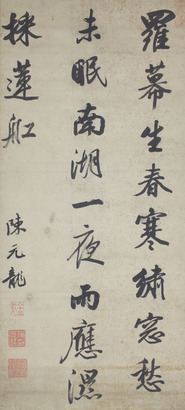 羅幕生春寒繡窓愁
未眠南湖一夜雨應濕
採蓮船
陳元龍